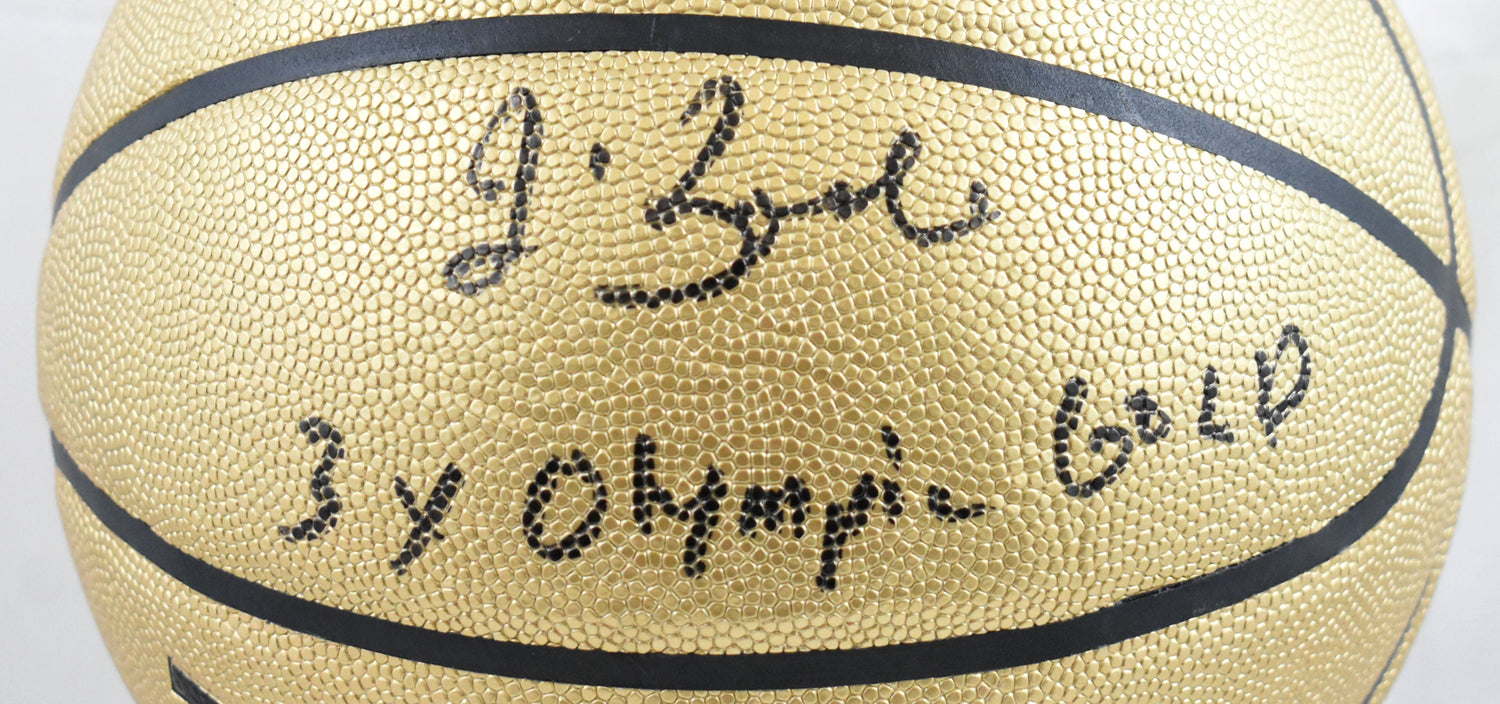 3x Olympic GOLD